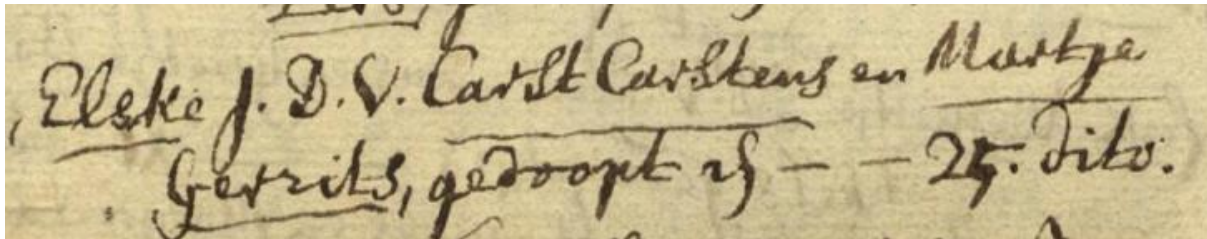 Elske J. D. V. Carst Carstens en Martje
Gerrits, gedoopt - - 25. dito.